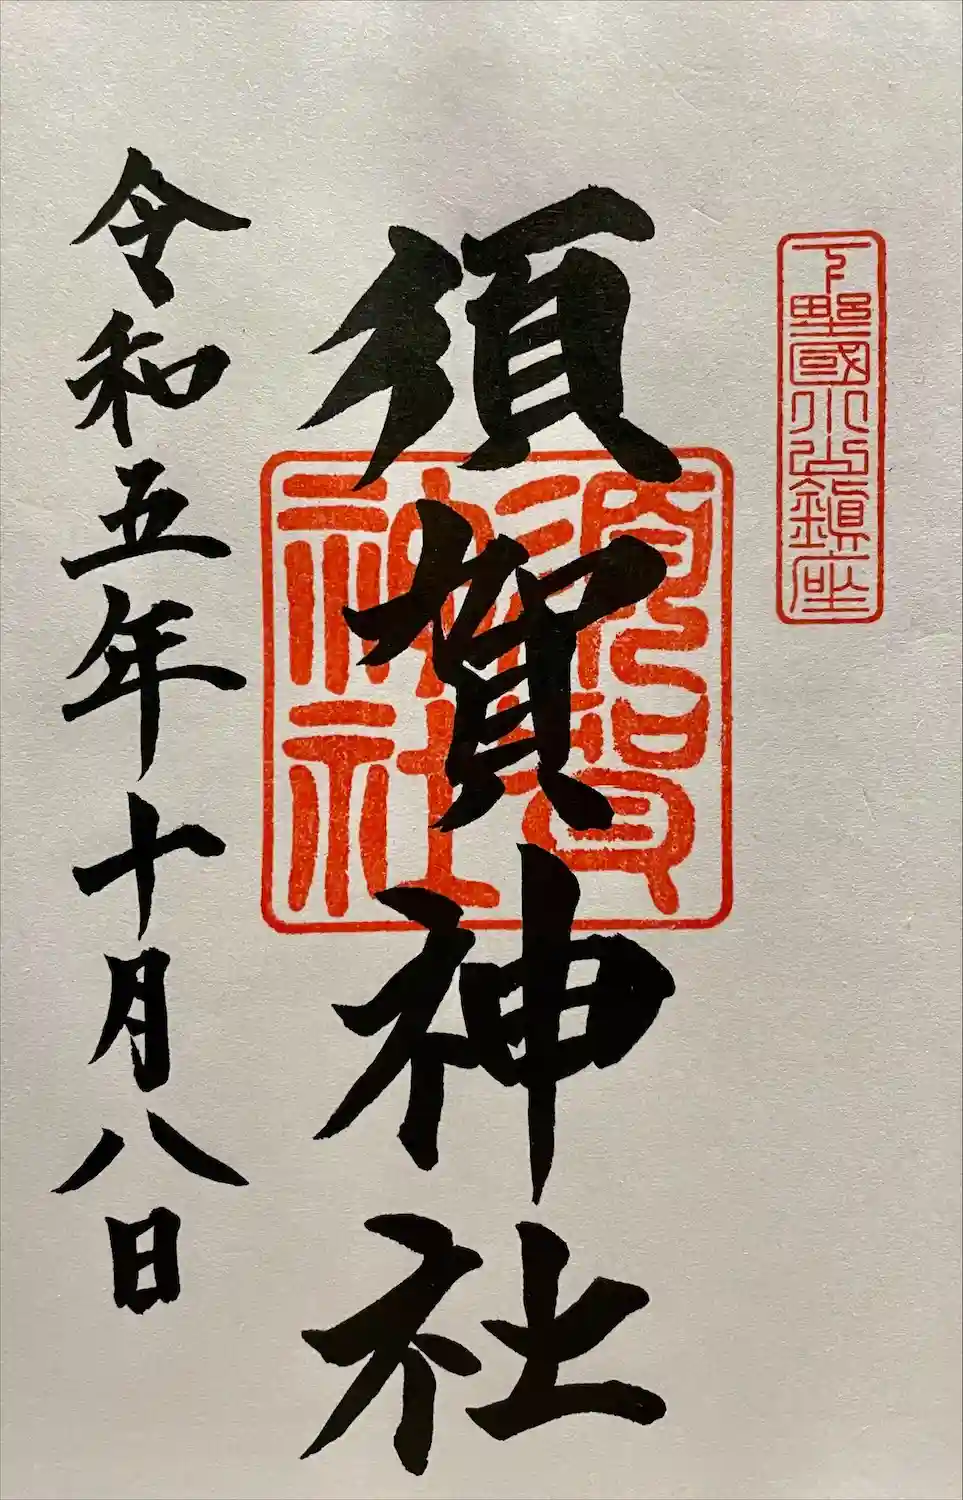 下野國小山鎮座
須賀神社
須賀神社
令和五年十月八日